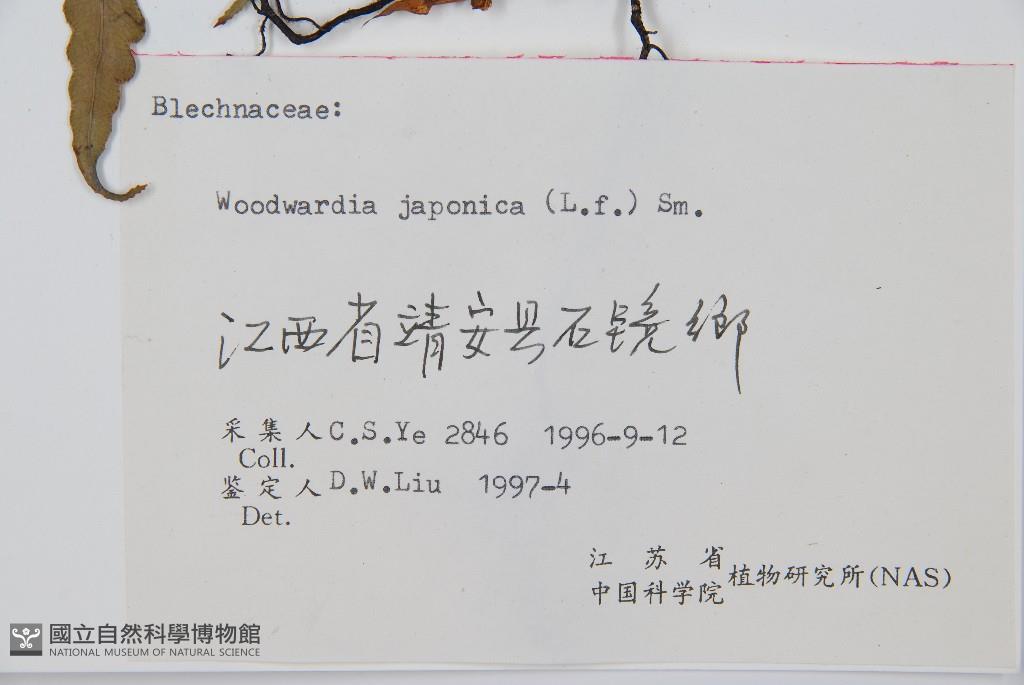 Blechnaceae:
Woodwardia japonica (L.f.) Sm.
江西省靖安县石镜鄉
采集人 C.S.Ye 2846 1996-9-12
Coll.
鉴定人 D.W.Liu 1997-4
Det.
江苏省
中国科学院 植物研究所(NAS)
國立自然科學博物館
NATIONAL MUSEUM OF NATURAL SCIENCE